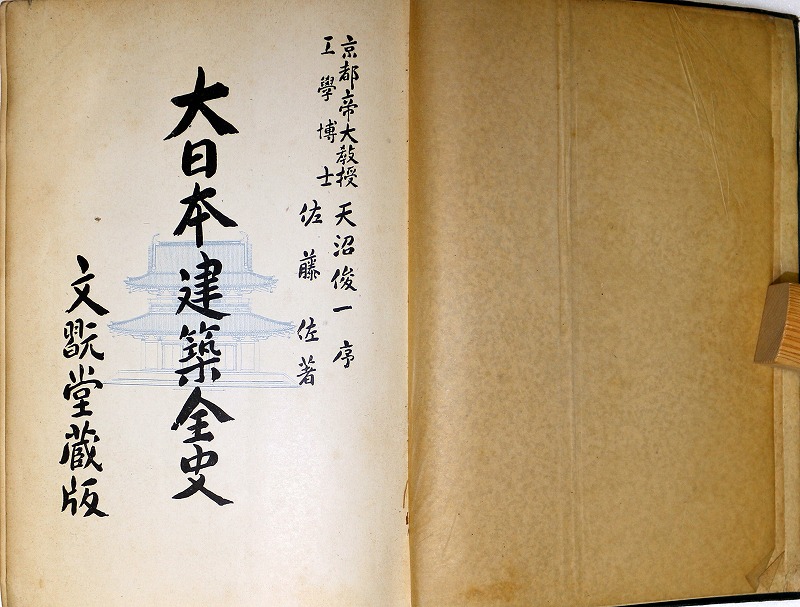 京都帝大教授
工學博士
天沼俊一序
佐藤佐著
大日本建築全史
文翫堂蔵版